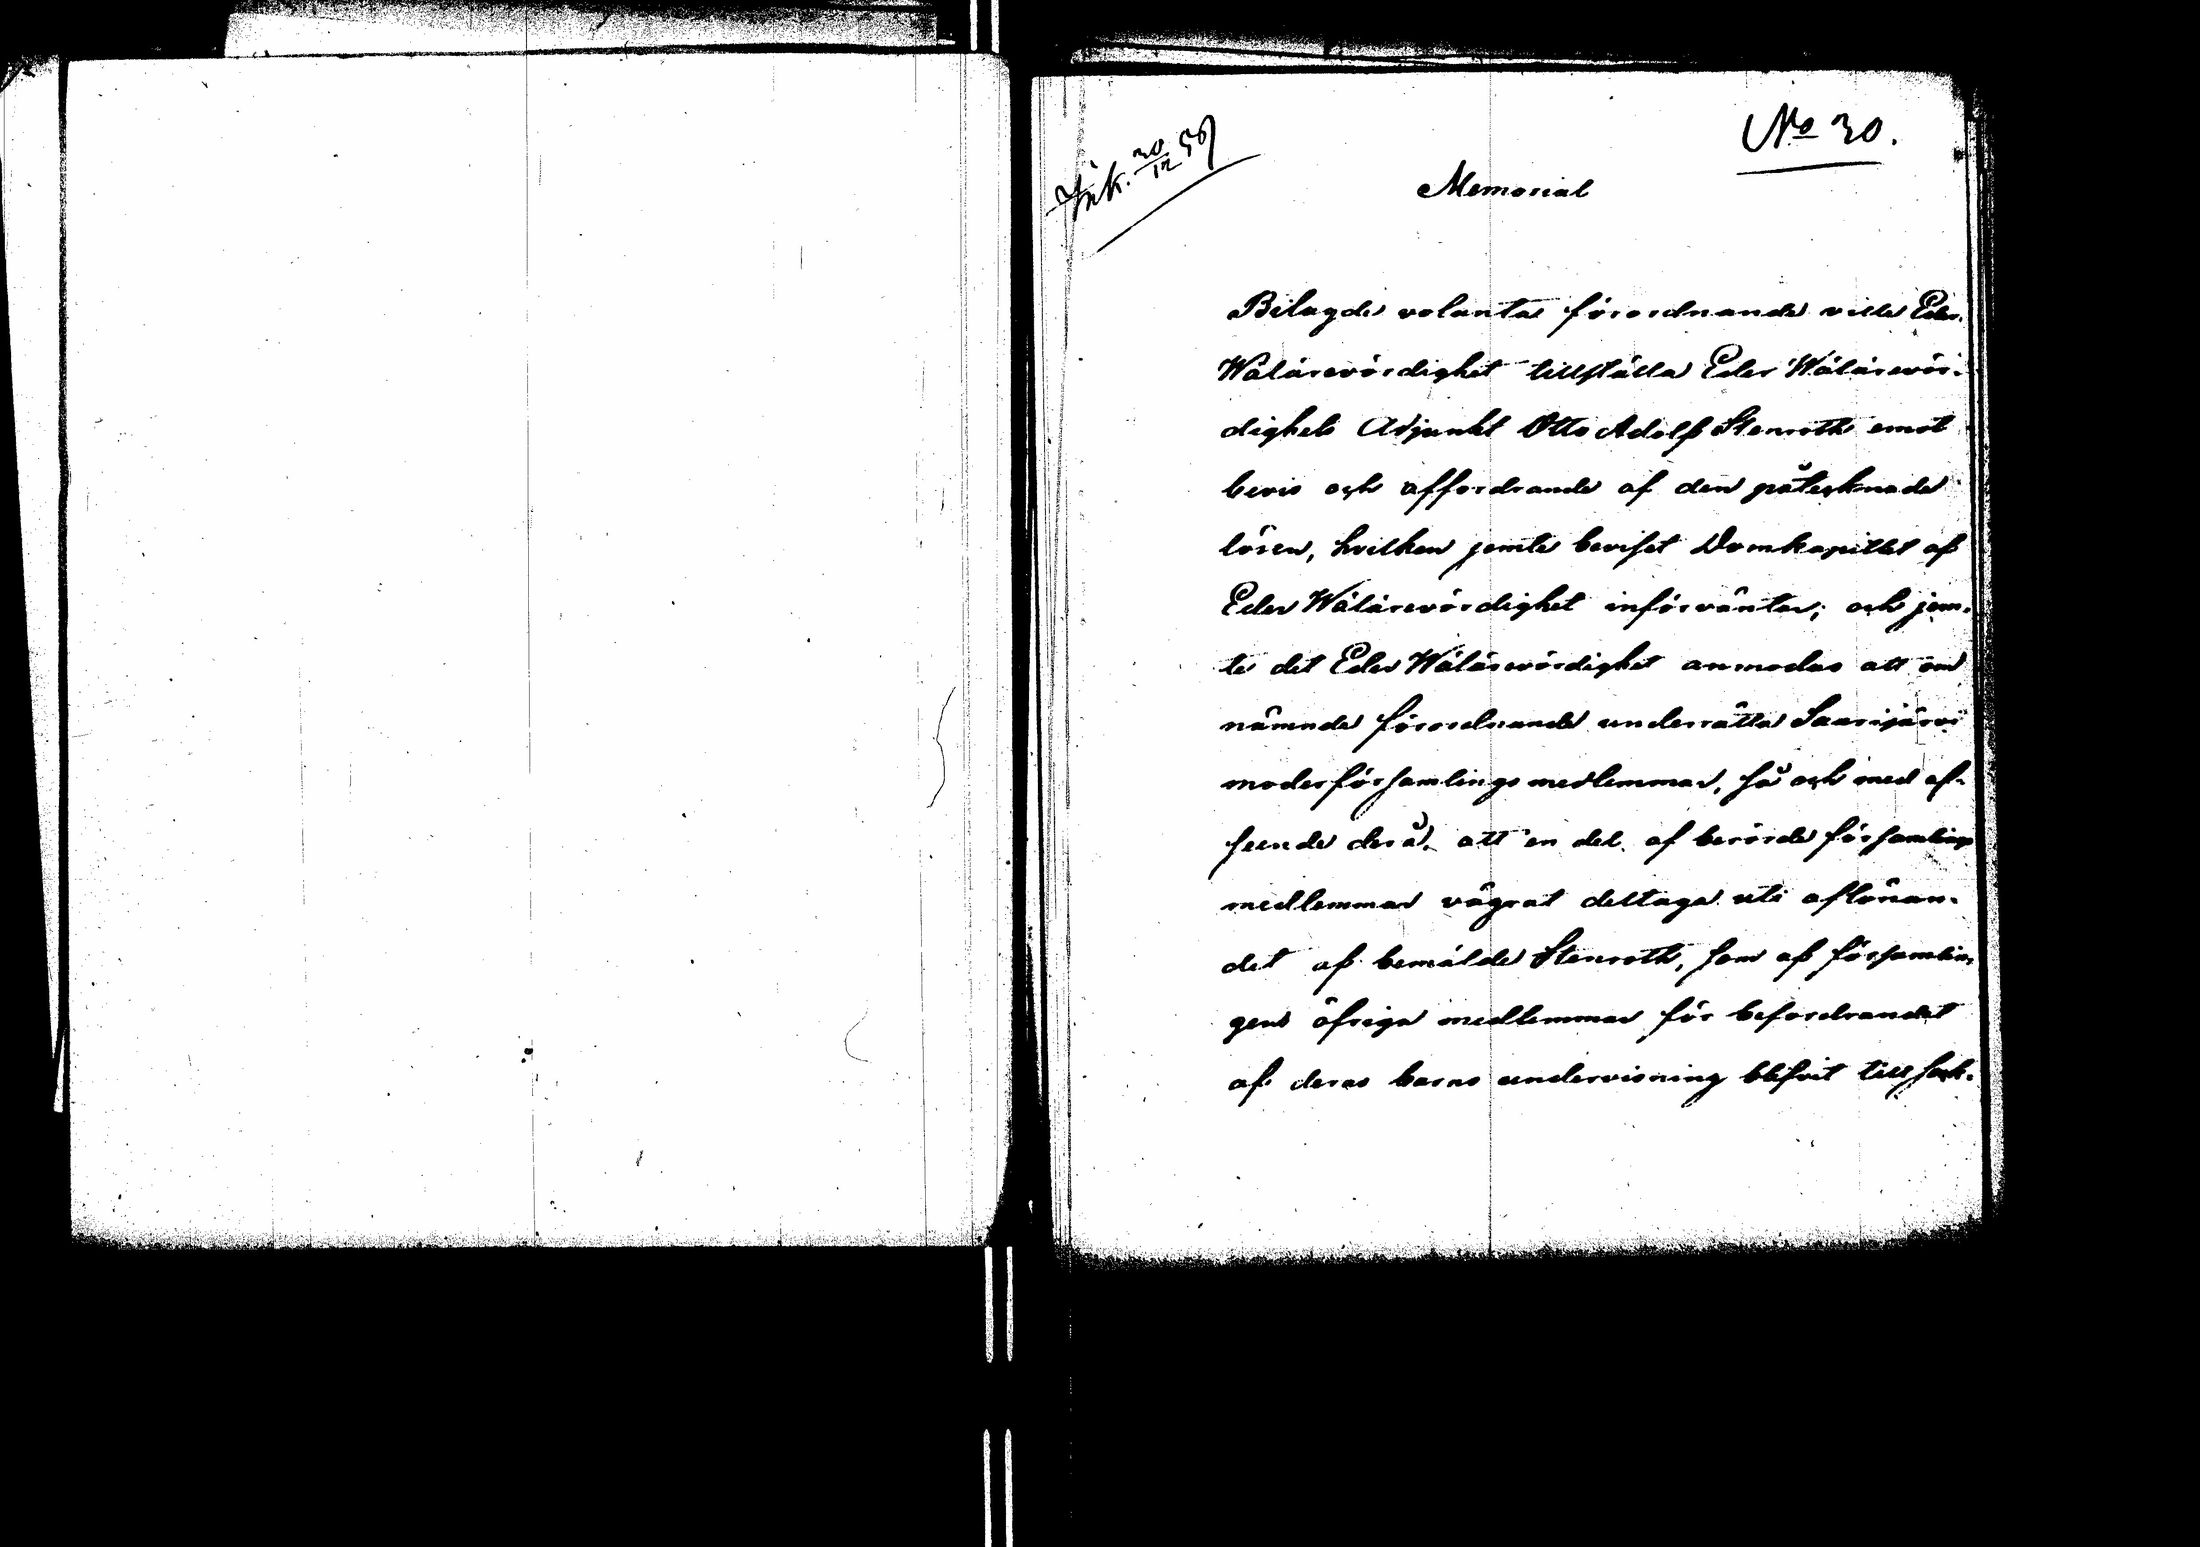 Ink. 30/12 59
No 30.
Memorial
Bilagde volanta förordnande ville Eder
Wälärevördighet tillställa Eder Wälärevör-
dighets Adjunkt Otto Adolf Stenroth emot
bevis och affordrande af den påtecknade
lösen, hvilken jemte beviset Domkapitlet af
Eder Wälärevördighet införväntar; och jem-
te det Eder Wälärevördighet anmodas att om
nämnde förordnande underrätta Saarijärvi
moderförsamlings medlemmar, så och med af-
seende derå, att en del af berörde församlings
medlemmar vägrat deltaga uti aflönan-
det af bemälde Stenroth, som af församlin-
gens öfriga medlemmar för befordrandet
af deras barns undervisning blifvit tillsatt